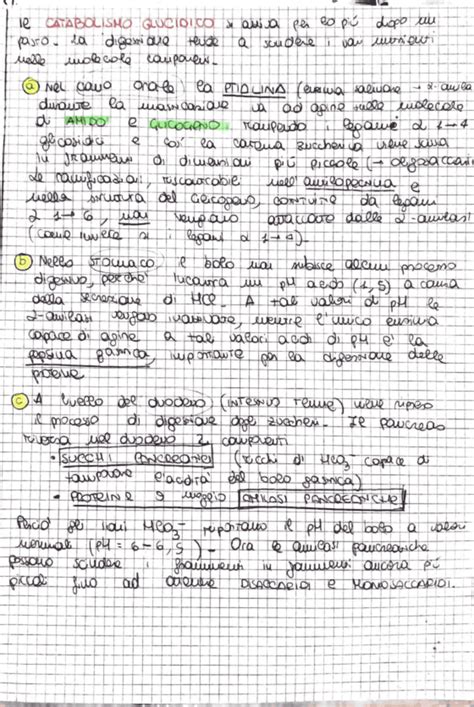 Il CATABOLISMO GLUCIDICO si avvia per lo più dopo un
pasto. La digestione tende a scindere i vari nutrienti
nelle molecole componenti.
a) Nel cavo orale la PTIALINA (enzima salivare → α-amilasi
durante la masticazione va ad agire sulle molecole
di AMIDO e GLICOGENO, rompendo i legami α 1→4
glicosidici e così la catena zuccherina viene scissa
in frammenti di dimensioni più piccole (→ oligosaccaridi
Le ramificazioni, riscontrabili nell'amilopectina e
nella struttura del Glicogeno, costituite da legami
α 1→6, non vengono attaccate dalle α-amilasi
(come invece x i legami α 1→4).
b) Nello stomaco il bolo non subisce alcun processo
digestivo, perché incontra un pH acido (1,5) a causa
della secrezione di HCl. A tali valori di pH le
α-amilasi vengono inattivate, mentre l'unico enzima
capace di agire a tali valori acidi di pH è la
pepsina gastrica, importante per la digestione delle
proteine
c) A livello del duodeno (intestino tenue) viene ripreso
il processo di digestione degli zuccheri. Il pancreas
riversa nel duodeno 2 componenti
• SUCCHI PANCREATICI (ricchi di HCO3⁻ capace di
tamponare l'acidità del bolo gastrico)
• PROTEINE o meglio AMILASI PANCREATICHE
Perciò gli ioni HCO3⁻ riportano il pH del bolo a valori
normali (pH = 6-6,5). Ora le amilasi pancreatiche
possono scindere i frammenti in frammenti ancora più
piccoli fino ad ottenere DISACCARIDI e MONOSACCARIDI.